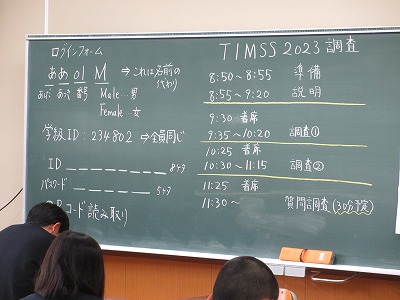 ログインフォーム
ああ 01 M ⇒これは名前の代わり
番号 Male…男
Female…女
学級ID：234802 ⇒全員同じ
ID ＿＿＿＿＿＿＿＿ 8ケタ
パスワード ＿＿＿＿＿ 5ケタ
コード読み取り
TIMSS 2023 調査
8:50～8:55 準備
8:55～9:20 説明
9:30 着席
9:35～10:20 調査①
10:25 着席
10:30～11:15 調査②
11:25 着席
11:30～ 質問調査(30分程度)